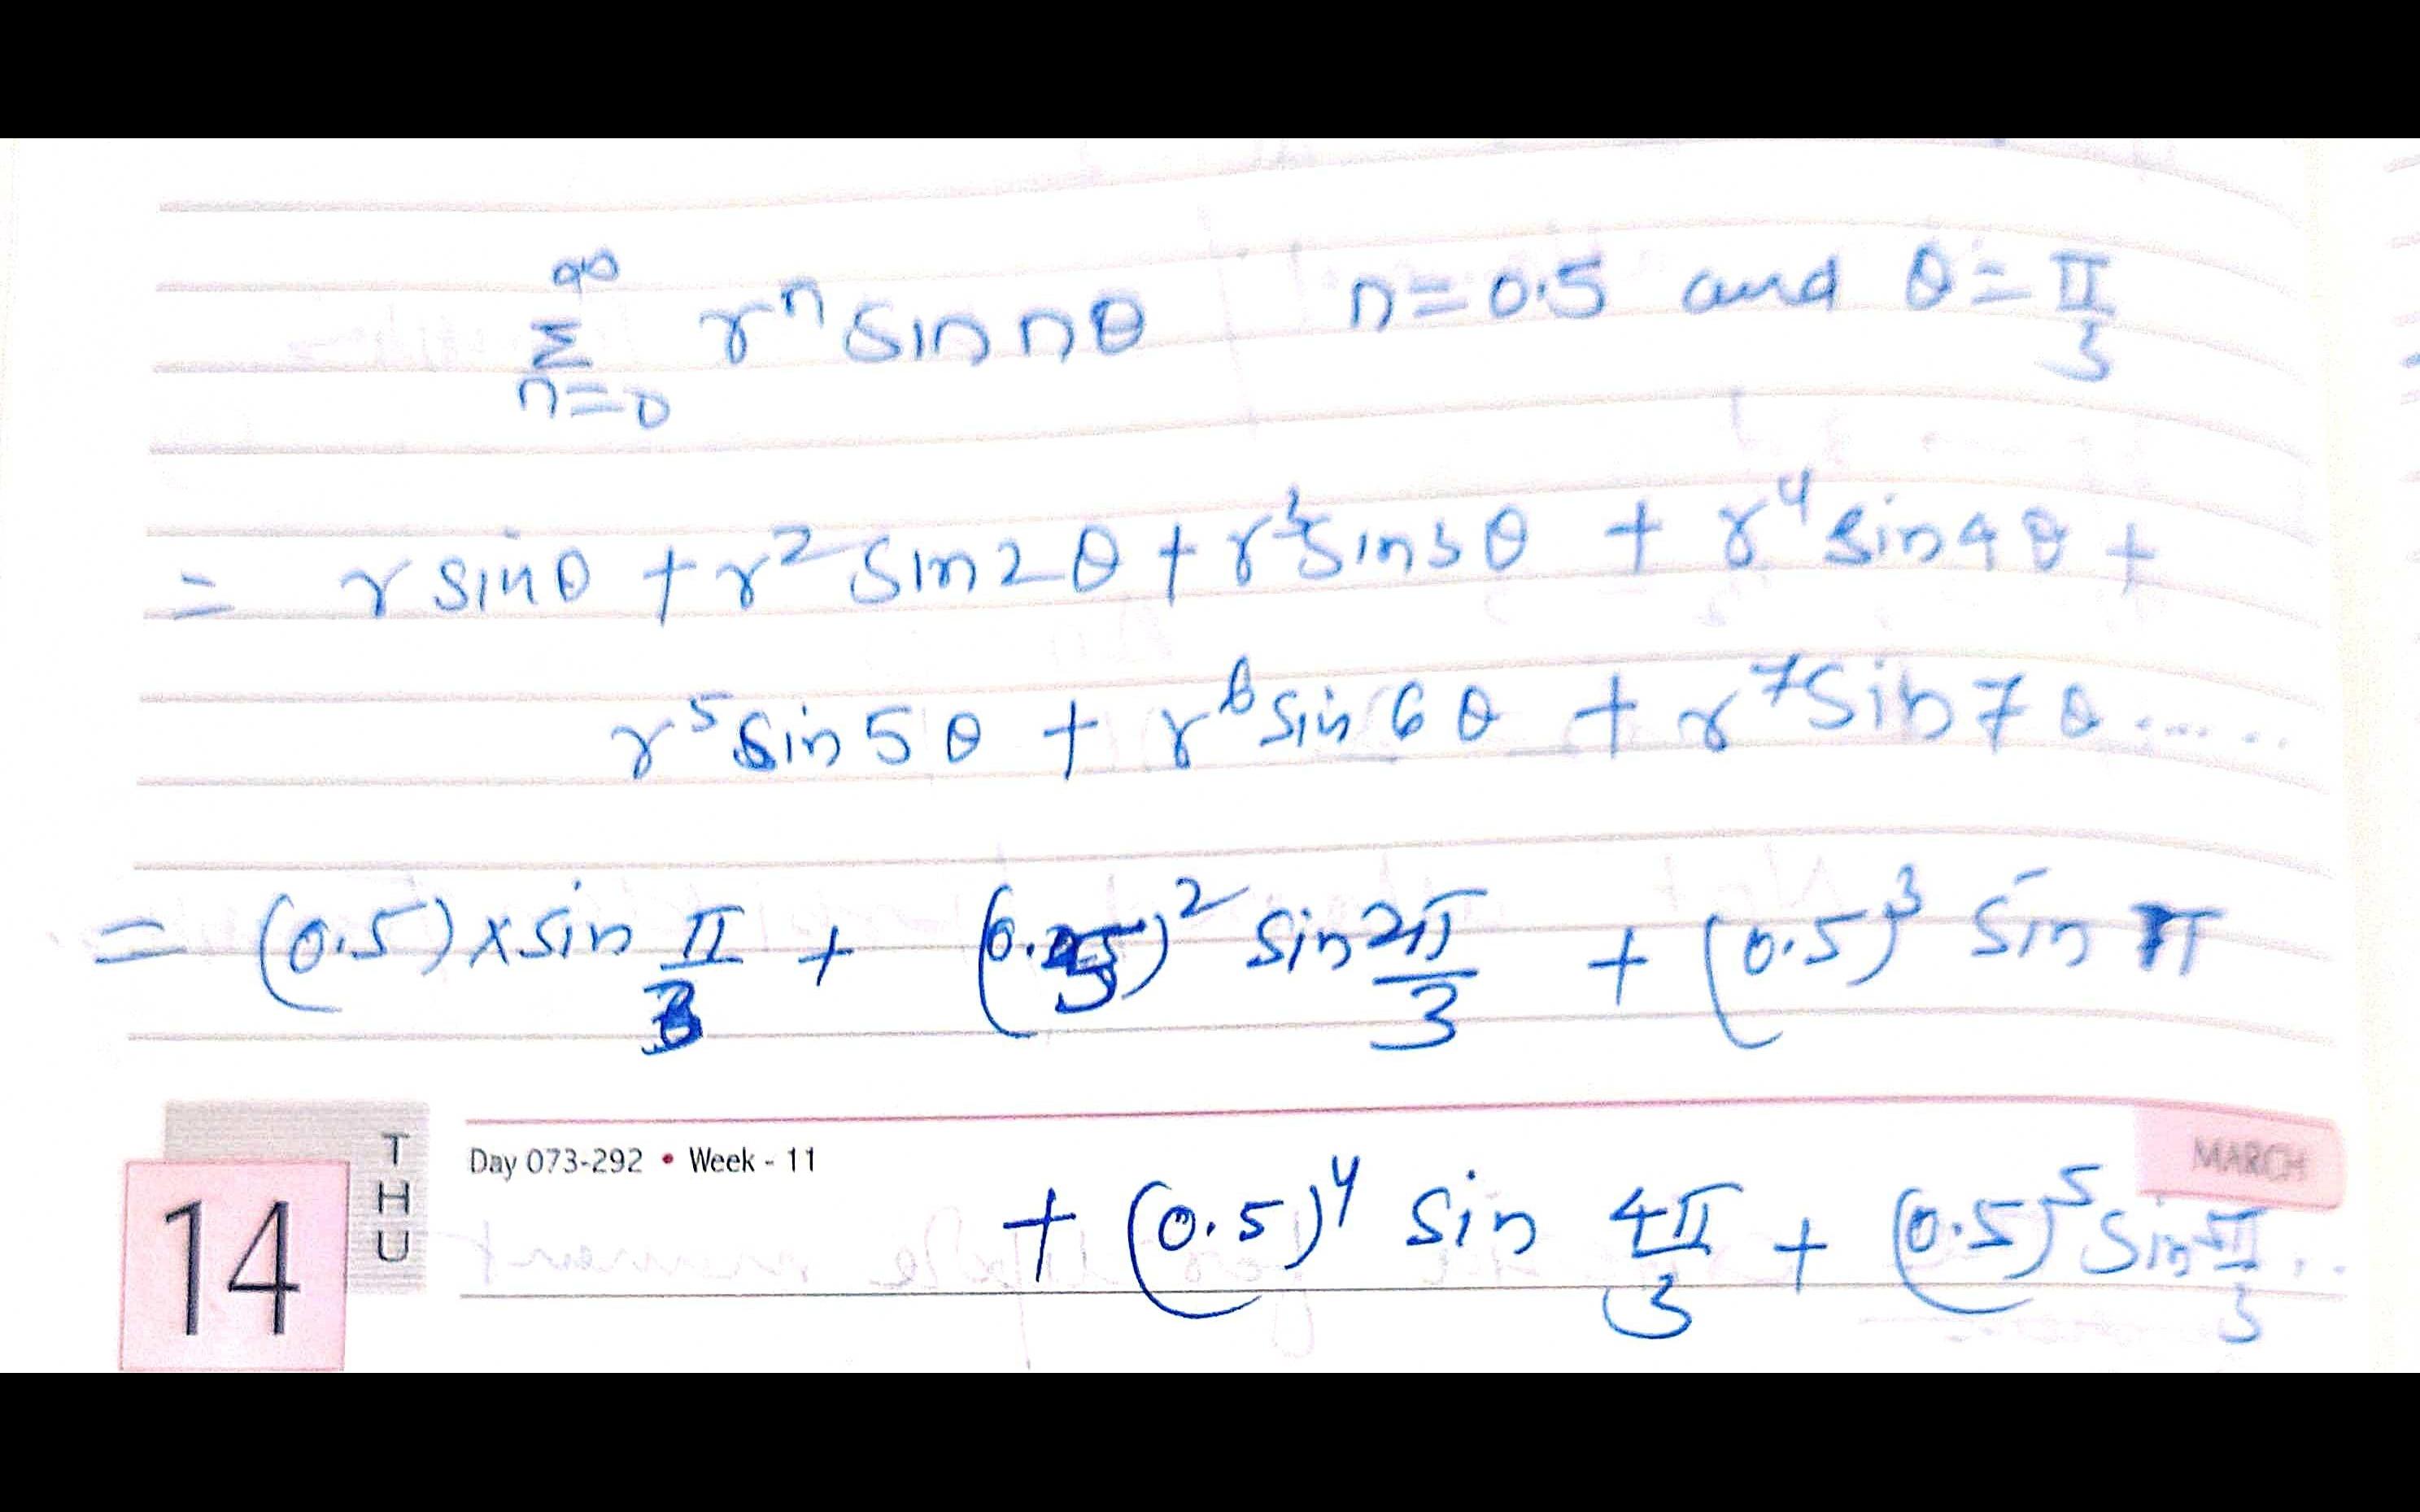 ∞
Σ rⁿ sin nθ n=0.5 and θ=π/3
n=0
= r sinθ + r² sin2θ + r³ sin3θ + r⁴ sin4θ +
r⁵ sin5θ + r⁶ sin6θ + r⁷ sin7θ.....
= (0.5) x sin π/3 + (0.5)² sin 2π/3 + (0.5)³ sin π
14 THU Day 073-292 • Week - 11 MARCH
+ (0.5)⁴ sin 4π/3 + (0.5)⁵ sin 5π/3 ..